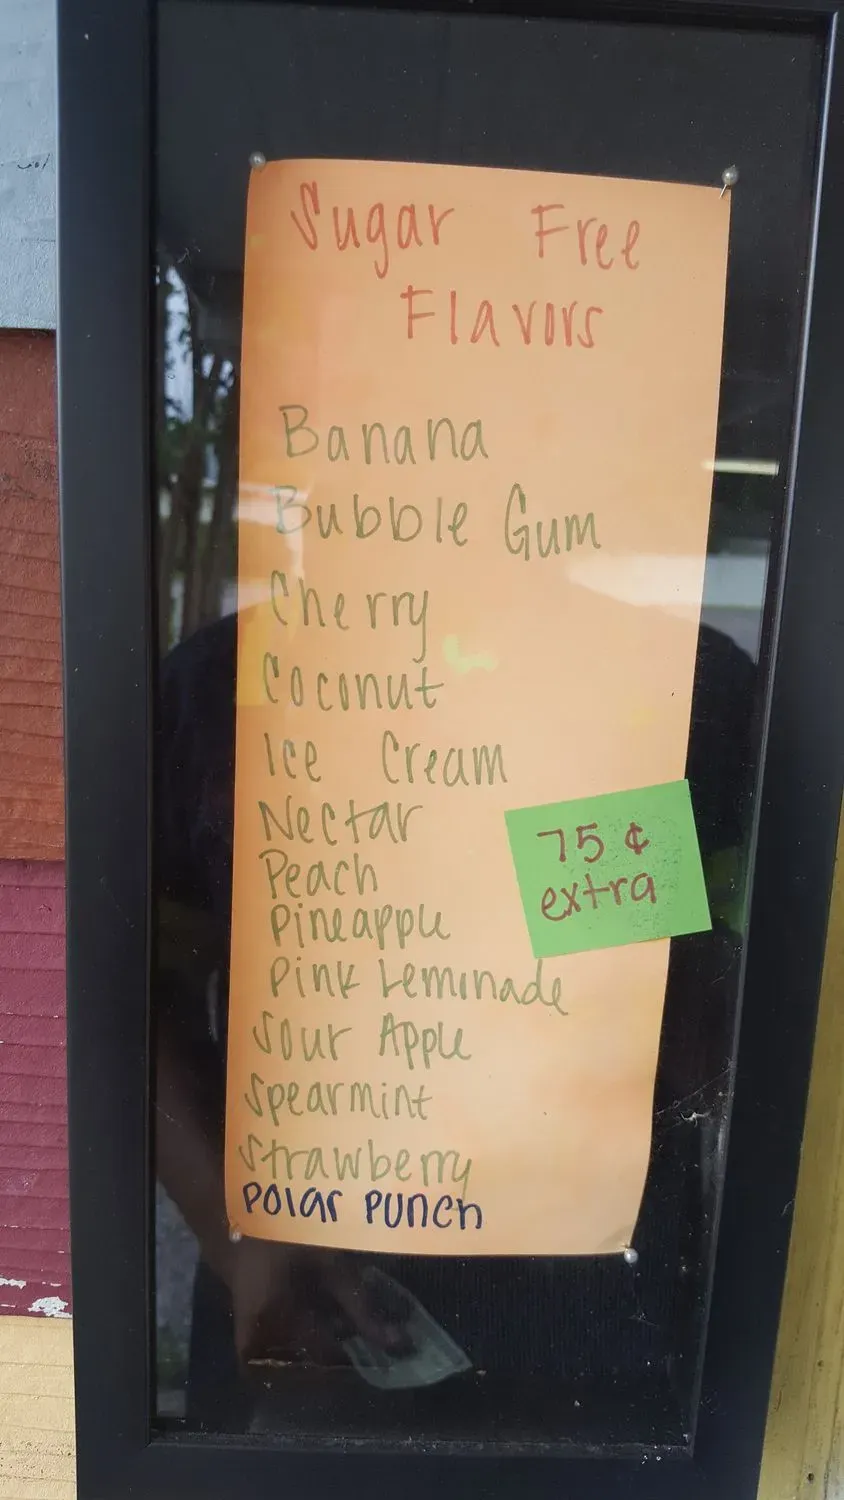 Sugar Free
Flavors
Banana
Bubble Gum
Cherry
Coconut
Ice Cream
Nectar
Peach
Pineapple
Pink Leminade
Sour Apple
Spearmint
Strawberry
Polar Punch
75 ¢
extra